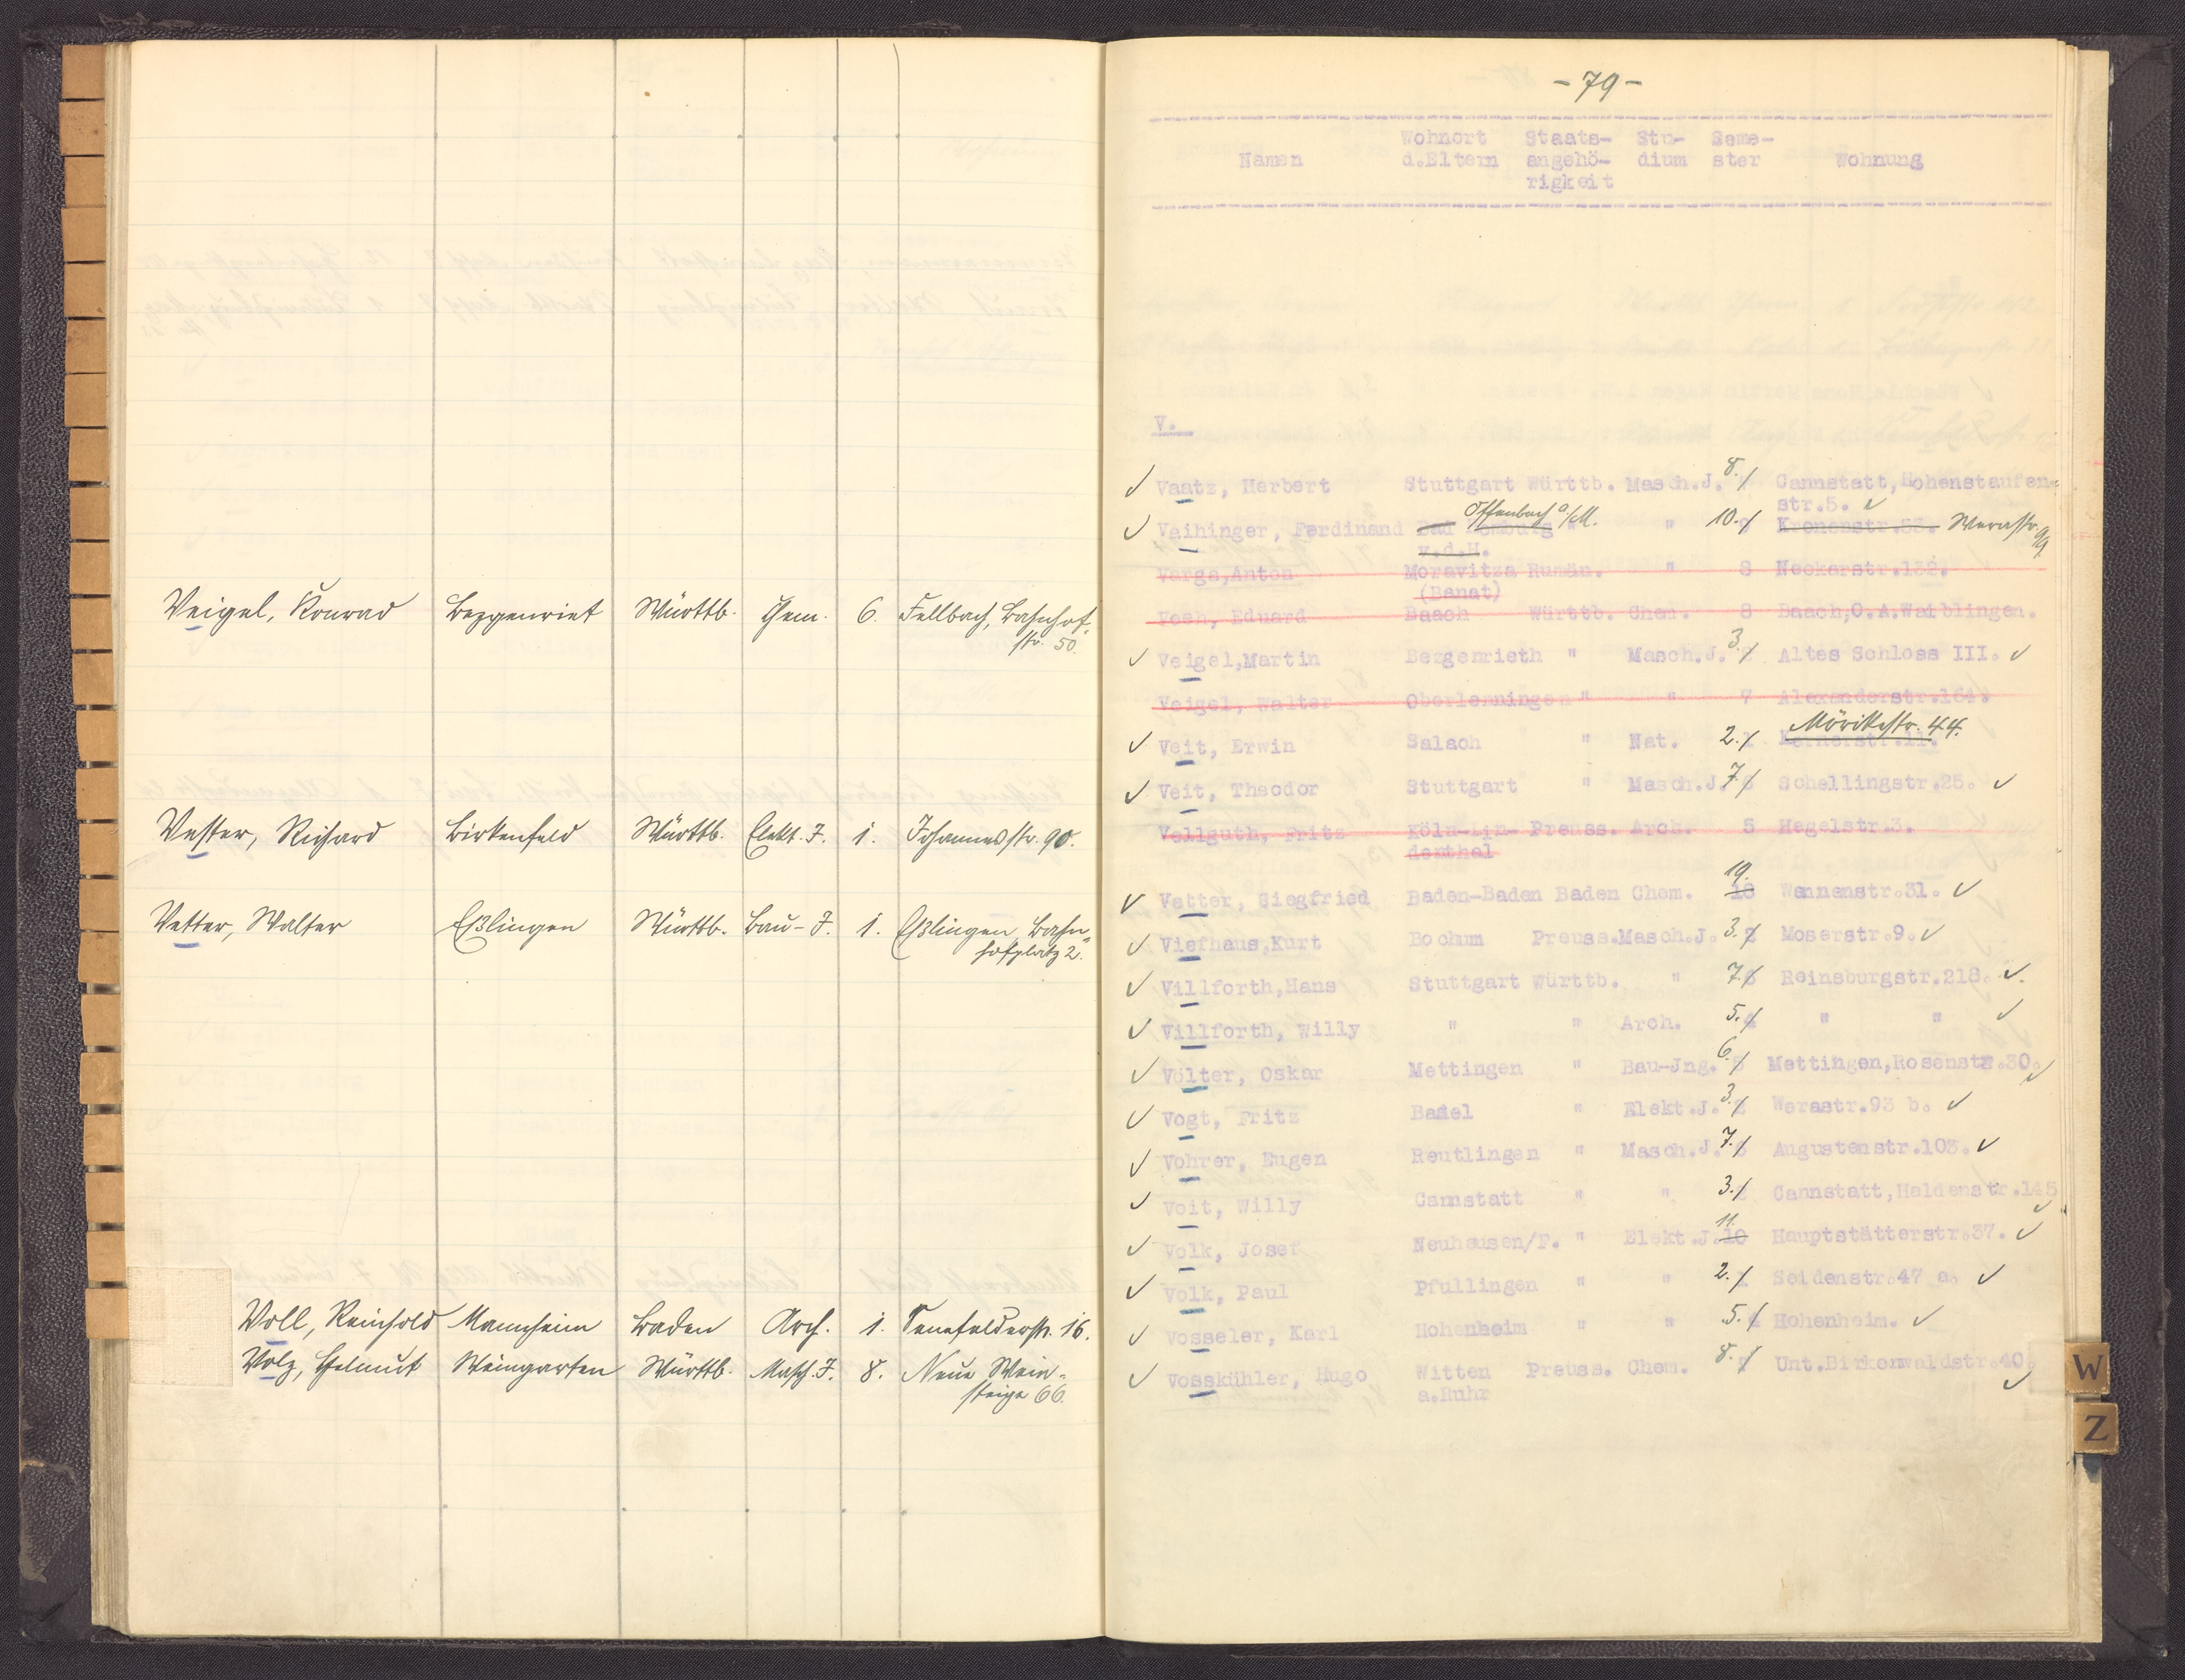 Veigel, Konrad Bezgenriet Württb. Chem. 6. Fellbach, Bahnhof-
str. 50.
Vester, Richard Birkenfeld Württb. Elekt. J. 1. Johannesstr. 90.
Vetter, Walter Eßlingen Württb. Bau-J. 1. Eßlingen, Bahn-
hofplatz 2.
Voll, Reinhold Mannheim Baden Arch. 1. Senefelderstr. 16.
Volz, Helmut Weingarten Württb. Masch. J. 8. Neue Wein-
steige 66.
- 79 -
Wohnort Staats- Stu- Seme-
Namen d.Eltern angehö- dium ster Wohnung
rigkeit
V.
Vaatz, Herbert Stuttgart Württb. Masch.J. 8. Cannstatt, Hohenstaufen-
str.5.
Offenbach a/M.
Vaihinger, Ferdinand Bad Homburg " " 10. Kronenstr. Werastr. 99
v.d.H.
Varga,Anton Moravitza Rumän. " 8 Neckarstr.132.
(Banat)
Vosh, Eduard Baach Württb. Chem. 8 Baach,O.A.Waiblingen.
Veigel,Martin Bezgenrieth " Masch.J. 3. Altes Schloss III.
Veigel, Walter Oberlenningen " " 7 Alexanderstr.164.
Mörikestr. 44.
Veit, Erwin Salach " Nat. 2. Kernerstr.11.
Veit, Theodor Stuttgart " Masch.J. 7. 6 Schellingstr.25.
Vellguth, Fritz Köln-Lin- Preuss. Arch. 5 Hegelstr.3.
denthal
19.
Vetter, Siegfried Baden-Baden Baden Chem. 18 Wannenstr.31.
Viefhaus,Kurt Bochum Preuss.Masch.J. 3. 2 Moserstr.9.
Villforth,Hans Stuttgart Württb. " 7. 6 Reinsburgstr.218.
Villforth, Willy " " Arch. 5. 4 " "
Völter, Oskar Mettingen " Bau-Jng. 6. 5 Mettingen,Rosenstr.30.
Vogt, Fritz Basel " Elekt.J. 3. 2 Werastr.93 b.
Vohrer, Eugen Reutlingen " Masch.J. 7. 6 Augustenstr.103.
Voit, Willy Cannstatt " " 3. Cannstatt,Haldenstr.145
11.
Volk, Josef Neuhausen/F. " Elekt.J. 10 Hauptstätterstr.37.
Volk, Paul Pfullingen " " 2. Seidenstr.47 a.
Vosseler, Karl Hohenheim " " 5. 4 Hohenheim.
Vosskühler, Hugo Witten Preuss. Chem. 8. Unt.Birkenwaldstr.40.
a.Ruhr
W
Z